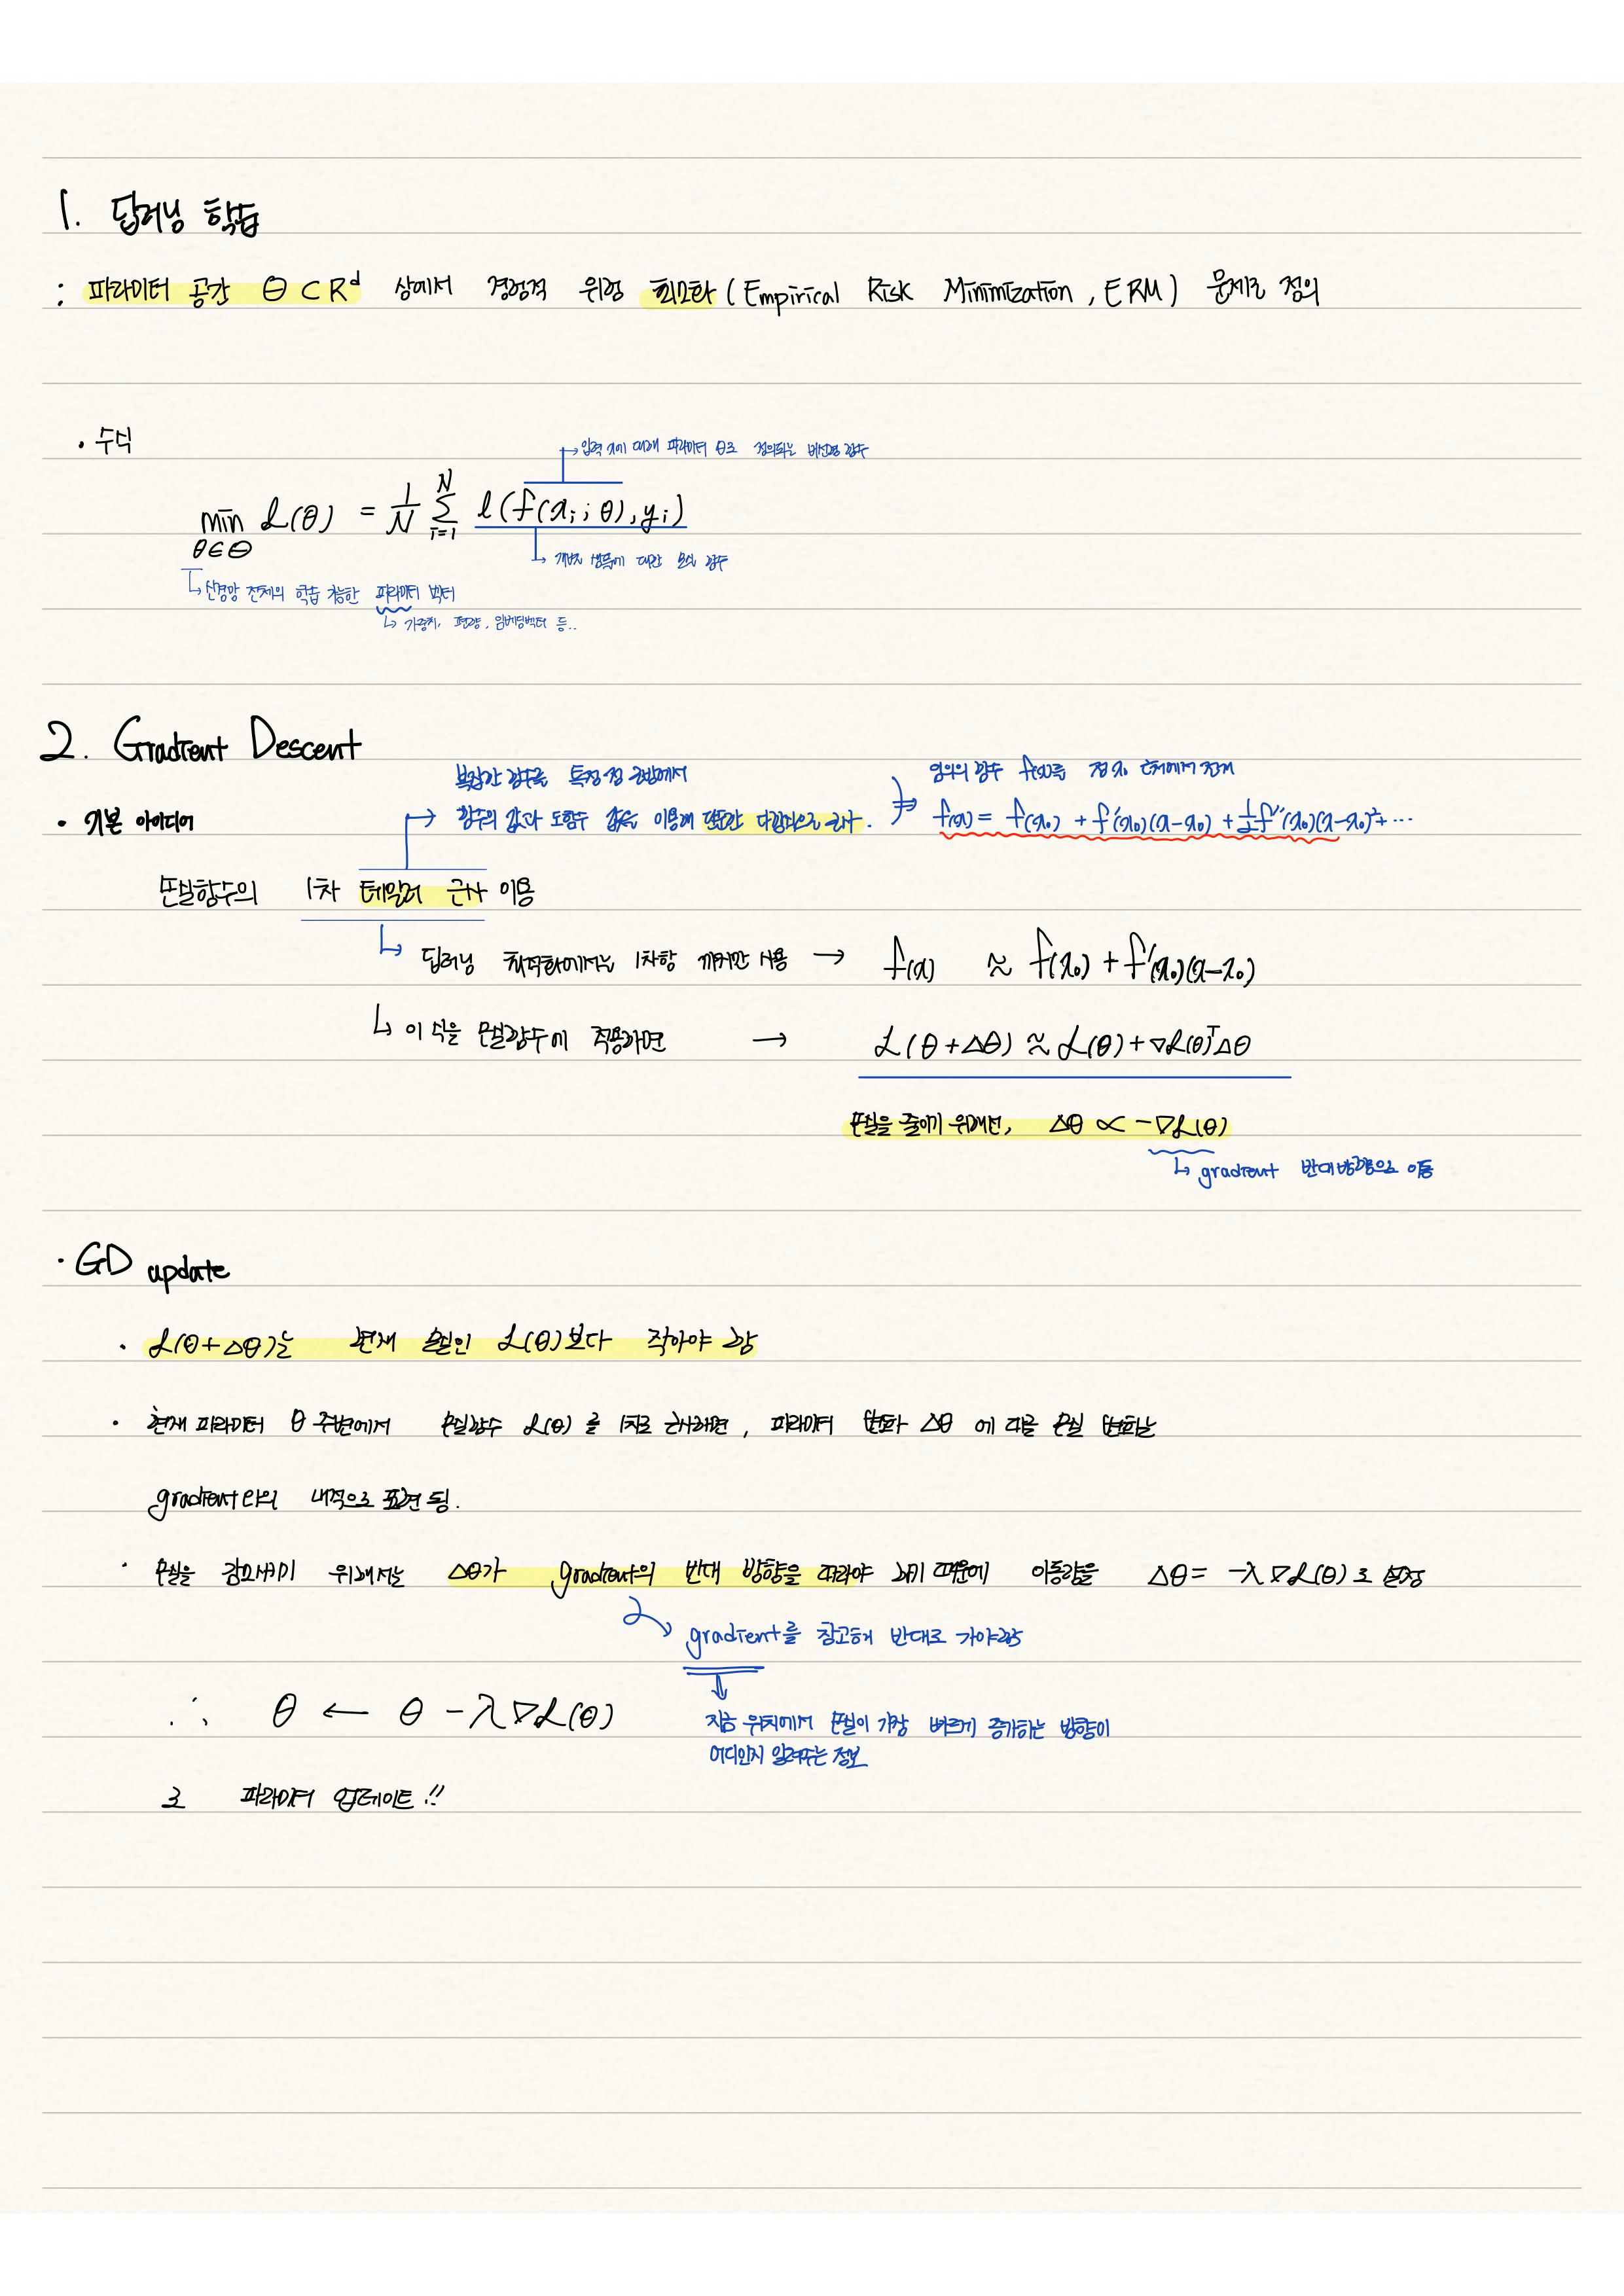 1. 딥러닝 학습
: 파라미터 공간 Θ ⊂ R^d 상에서 경험적 위험 최소화 (Empirical Risk Minimization, ERM) 문제로 정의
· 수식
↳ 입력 x에 대해 파라미터 θ로 정의되는 비선형 함수
min θ∈Θ L(θ) = 1/N Σ_{i=1}^{N} l(f(x_i; θ), y_i)
↳ 개별 샘플에 대한 손실 함수
↳ 신경망 전체의 학습 가능한 파라미터 벡터
↳ 가중치, 편향, 임베딩벡터 등..
2. Gradient Descent
복잡한 함수를 특정 점 근방에서
임의의 함수 f(x)를 점 x₀ 근처에서 전개
· 기본 아이디어
→ 함수의 값과 도함수 값을 이용해 단순한 다항식으로 근사.
⇒ f(x) = f(x₀) + f'(x₀)(x-x₀) + 1/2 f''(x₀)(x-x₀)² + ···
손실함수의 1차 테일러 근사 이용
↳ 딥러닝 최적화에서는 1차항 까지만 사용 → f(x) ≈ f(x₀) + f'(x₀)(x-x₀)
↳ 이 식을 손실함수에 적용하면 → L(θ+Δθ) ≈ L(θ) + ∇L(θ)ᵀΔθ
손실을 줄이기 위해선, Δθ ∝ -∇L(θ)
↳ gradient 반대방향으로 이동
· GD update
· L(θ+Δθ)는 현재 손실인 L(θ)보다 작아야 함
· 현재 파라미터 θ 주변에서 손실함수 L(θ)를 1차로 근사하면, 파라미터 변화 Δθ에 따른 손실 변화는
gradient와의 내적으로 표현 됨.
· 손실을 감소시키기 위해서는 Δθ가 gradient의 반대 방향을 따라야 하기 때문에 이동량을 Δθ = -λ∇L(θ)로 설정
gradient를 참고해 반대로 가야함
∴ θ ← θ - λ∇L(θ)
지금 위치에서 손실이 가장 빠르게 증가하는 방향이
어디인지 알려주는 정보
로 파라미터 업데이트!!